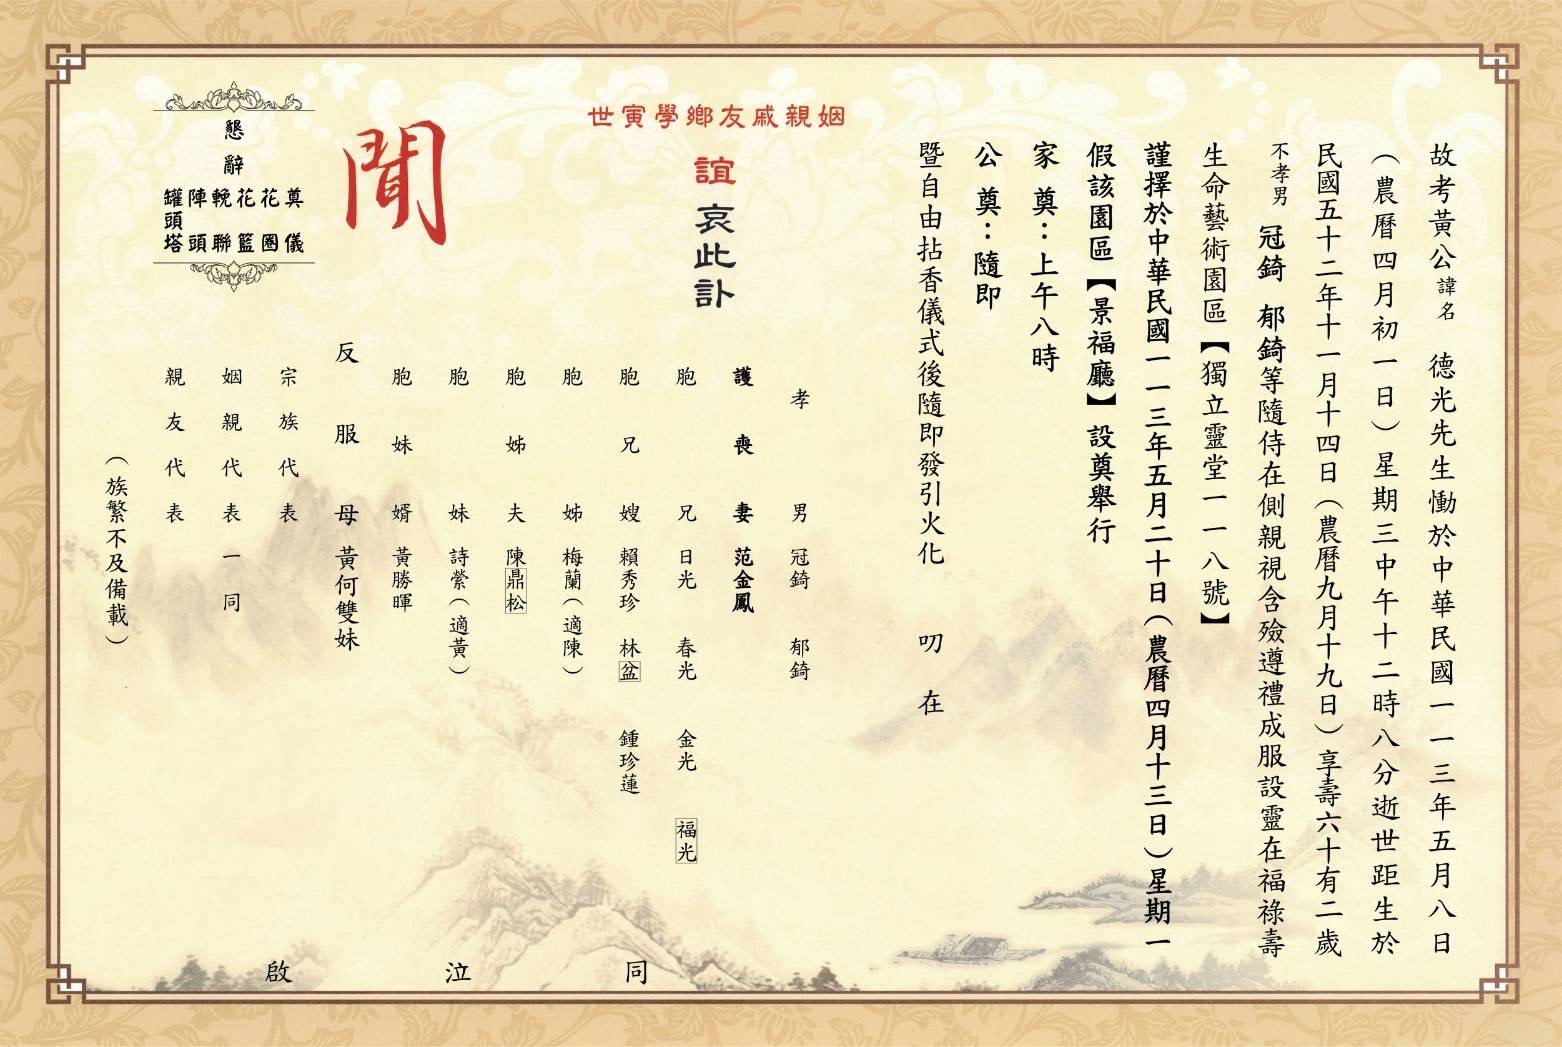 故考黃公諱名 德光先生慟於中華民國一一三年五月八日
（農曆四月初一日）星期三中午十二時八分逝世距生於
民國五十二年十一月十四日（農曆九月十九日）享壽六十有二歲
不孝男 冠錡 郁錡等隨侍在側親視含殮遵禮成服設靈在福祿壽
生命藝術園區【獨立靈堂一一八號】
謹擇於中華民國一一三年五月二十日（農曆四月十三日）星期一
假該園區【景福廳】設奠舉行
家 奠：上午八時
公 奠：隨即
暨自由拈香儀式後隨即發引火化 叨 在
姻親戚友鄉學寅世
誼 哀此訃
聞
孝 男 冠錡 郁錡
護 喪 妻 范金鳳
胞 兄 日光 春光 金光 福光
胞 兄 嫂 賴秀珍 林盆 鍾珍蓮
胞 姊 梅蘭（適陳）
胞 姊 夫 陳鼎松
胞 妹 詩縈（適黃）
胞 妹 婿 黃勝暉
反 服 母 黃何雙妹
宗 族 代 表
姻 親 代 表 一 同
親 友 代 表
（族繁不及備載）
同 泣 啟
懇 辭
奠 儀
花 圈
花 籃
輓 聯
陣 頭
罐頭塔